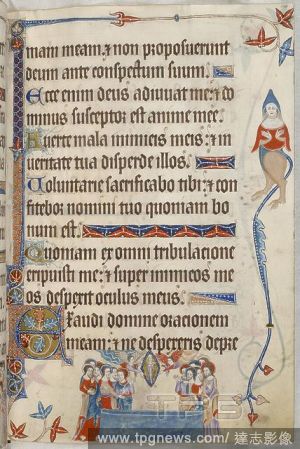 mam meam: & non proposuerunt
deum ante conspectum suum.
Ecce enim deus adiuuat me: & do
minus susceptor est anime mee.
Auerte mala inimicis meis: & in
ueritate tua disperde illos.
Voluntarie sacrificabo tibi: & con
fitebor nomini tuo quoniam bo
num est.
Quoniam ex omni tribulacione
eripuisti me: & super inimicos me
os despexit oculus meus.
Exaudi domine oracionem
meam: & ne despexeris depre
TPG
www.tpgnews.com/ 達志影像